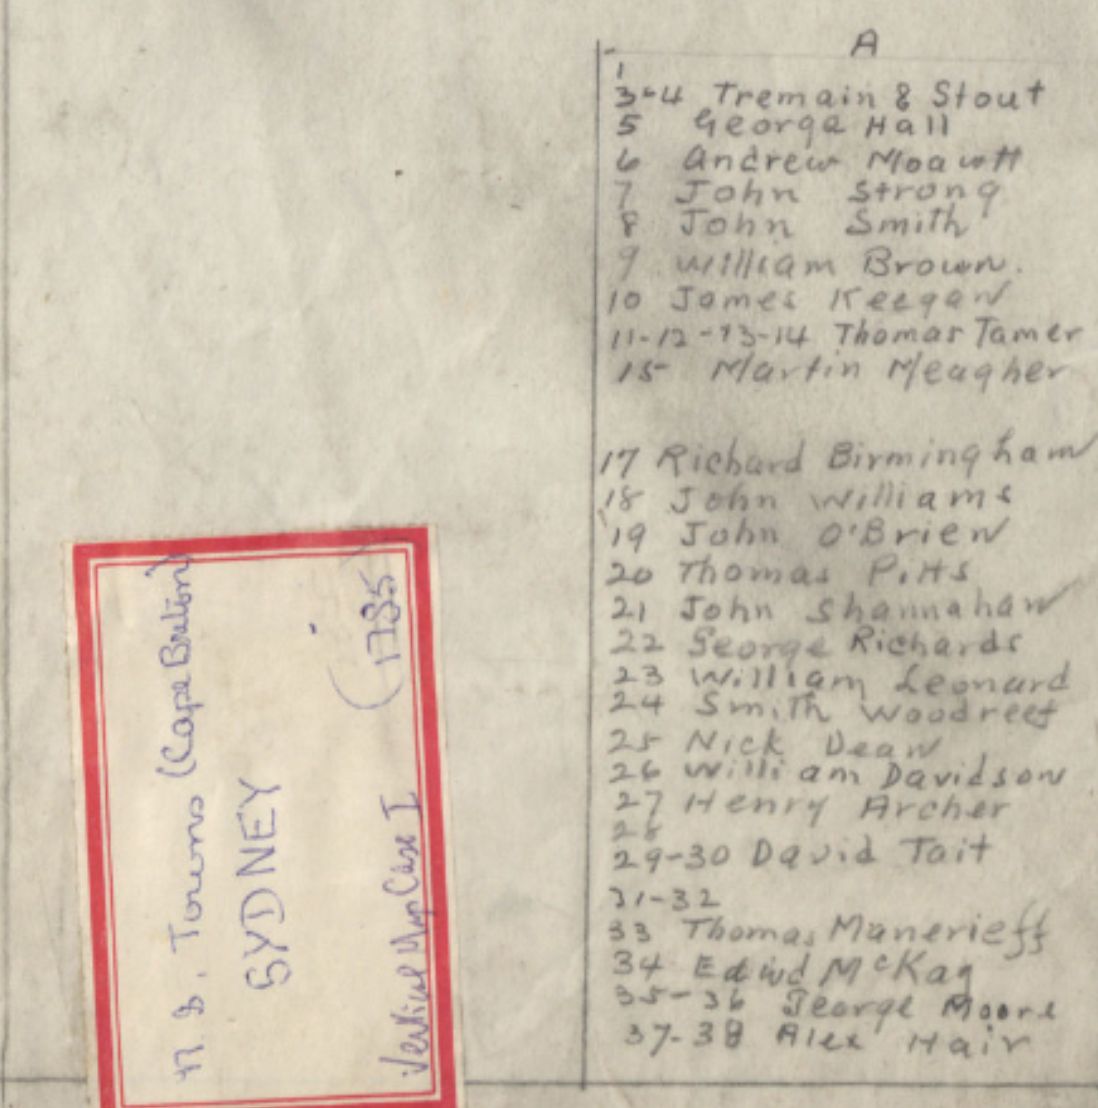 A
1
3-4 Tremain & Stout
5 George Hall
6 Andrew
7 John Strong
8 John Smith
9 William Brown.
10 James Keegan
11-12-13-14 Thomas Tamer
15 Martin Meagher
17 Richard Birmingham
18 John Williams
19 John O'Brien
20 Thomas Pitts
21 John Shannahan
22 George Richards
23 William Leonard
24 Smith Woodreef
25 Nick Dean
26 William Davidson
27 Henry Archer
28
29-30 David Tait
31-32
33 Thomas Manerieff
34 Edwd McKag
35-36 George Moore
37-38 Alex Hair
N.S. Towns (Cape Breton)
SYDNEY
(1785)
Vertical Map Case I